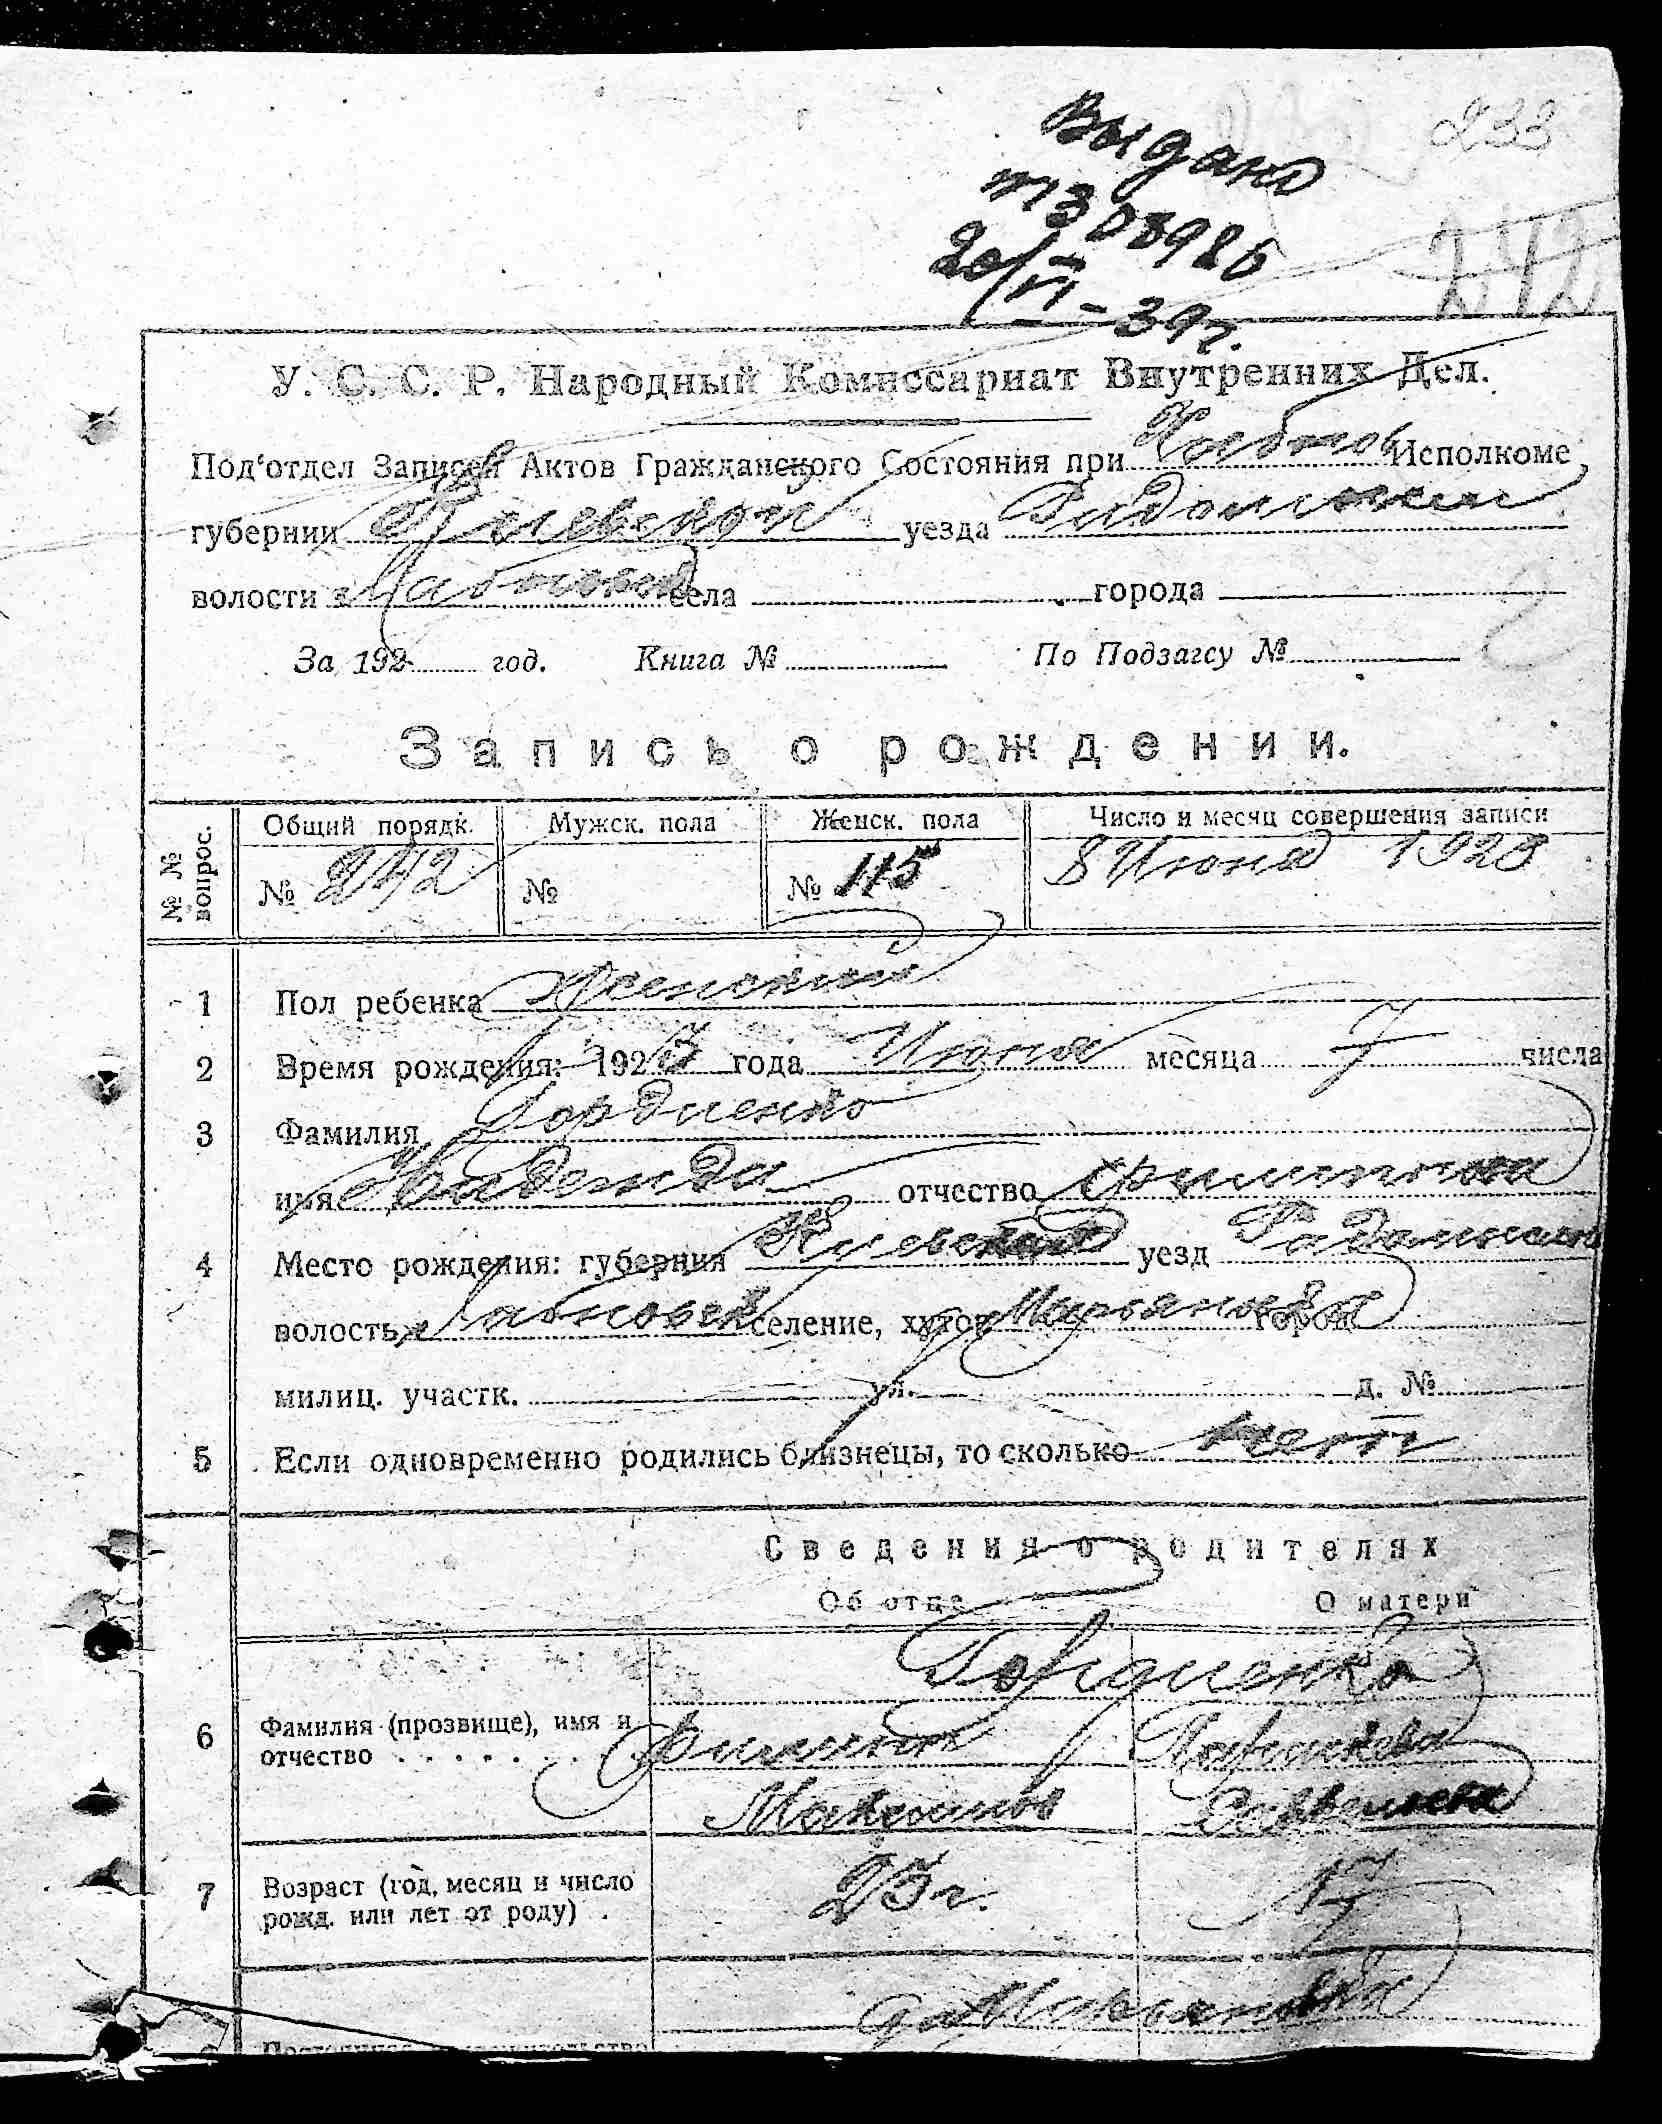 233
Выдано
№ 308986
20/VI-39г.
242
У. С. С. Р. Народный Комиссариат Внутренних Дел.
Под'отдел Записей Актов Гражданского Состояния при Хабнов Исполкоме
губернии Киевской уезда Радомысл
волости Хабновск села города
За 192 год. Книга № По Подзагсу №
Запись о рождении.
№ № вопрос. Общий порядк. Мужск. пола Женск. пола Число и месяц совершения записи
№ 242 № № 115 8 Июня 1923
1 Пол ребенка Женский
2 Время рождения: 1923 года Июня месяца 7 числа
3 Фамилия Гордиенко
имя Надежда отчество Филиппова
4 Место рождения: губерния Киевская уезд Радомысл
волость Хабновск селение, хутор Марьяновка город
милиц. участк. ул. д. №
5 Если одновременно родились близнецы, то сколько нет
Сведения о родителях
Об отце О матери
Гордиенко
6 Фамилия (прозвище), имя и отчество Филипп
Максимов Савельева
7 Возраст (год, месяц и число рожд. или лет от роду) 25 г. 17
д Марьяновка